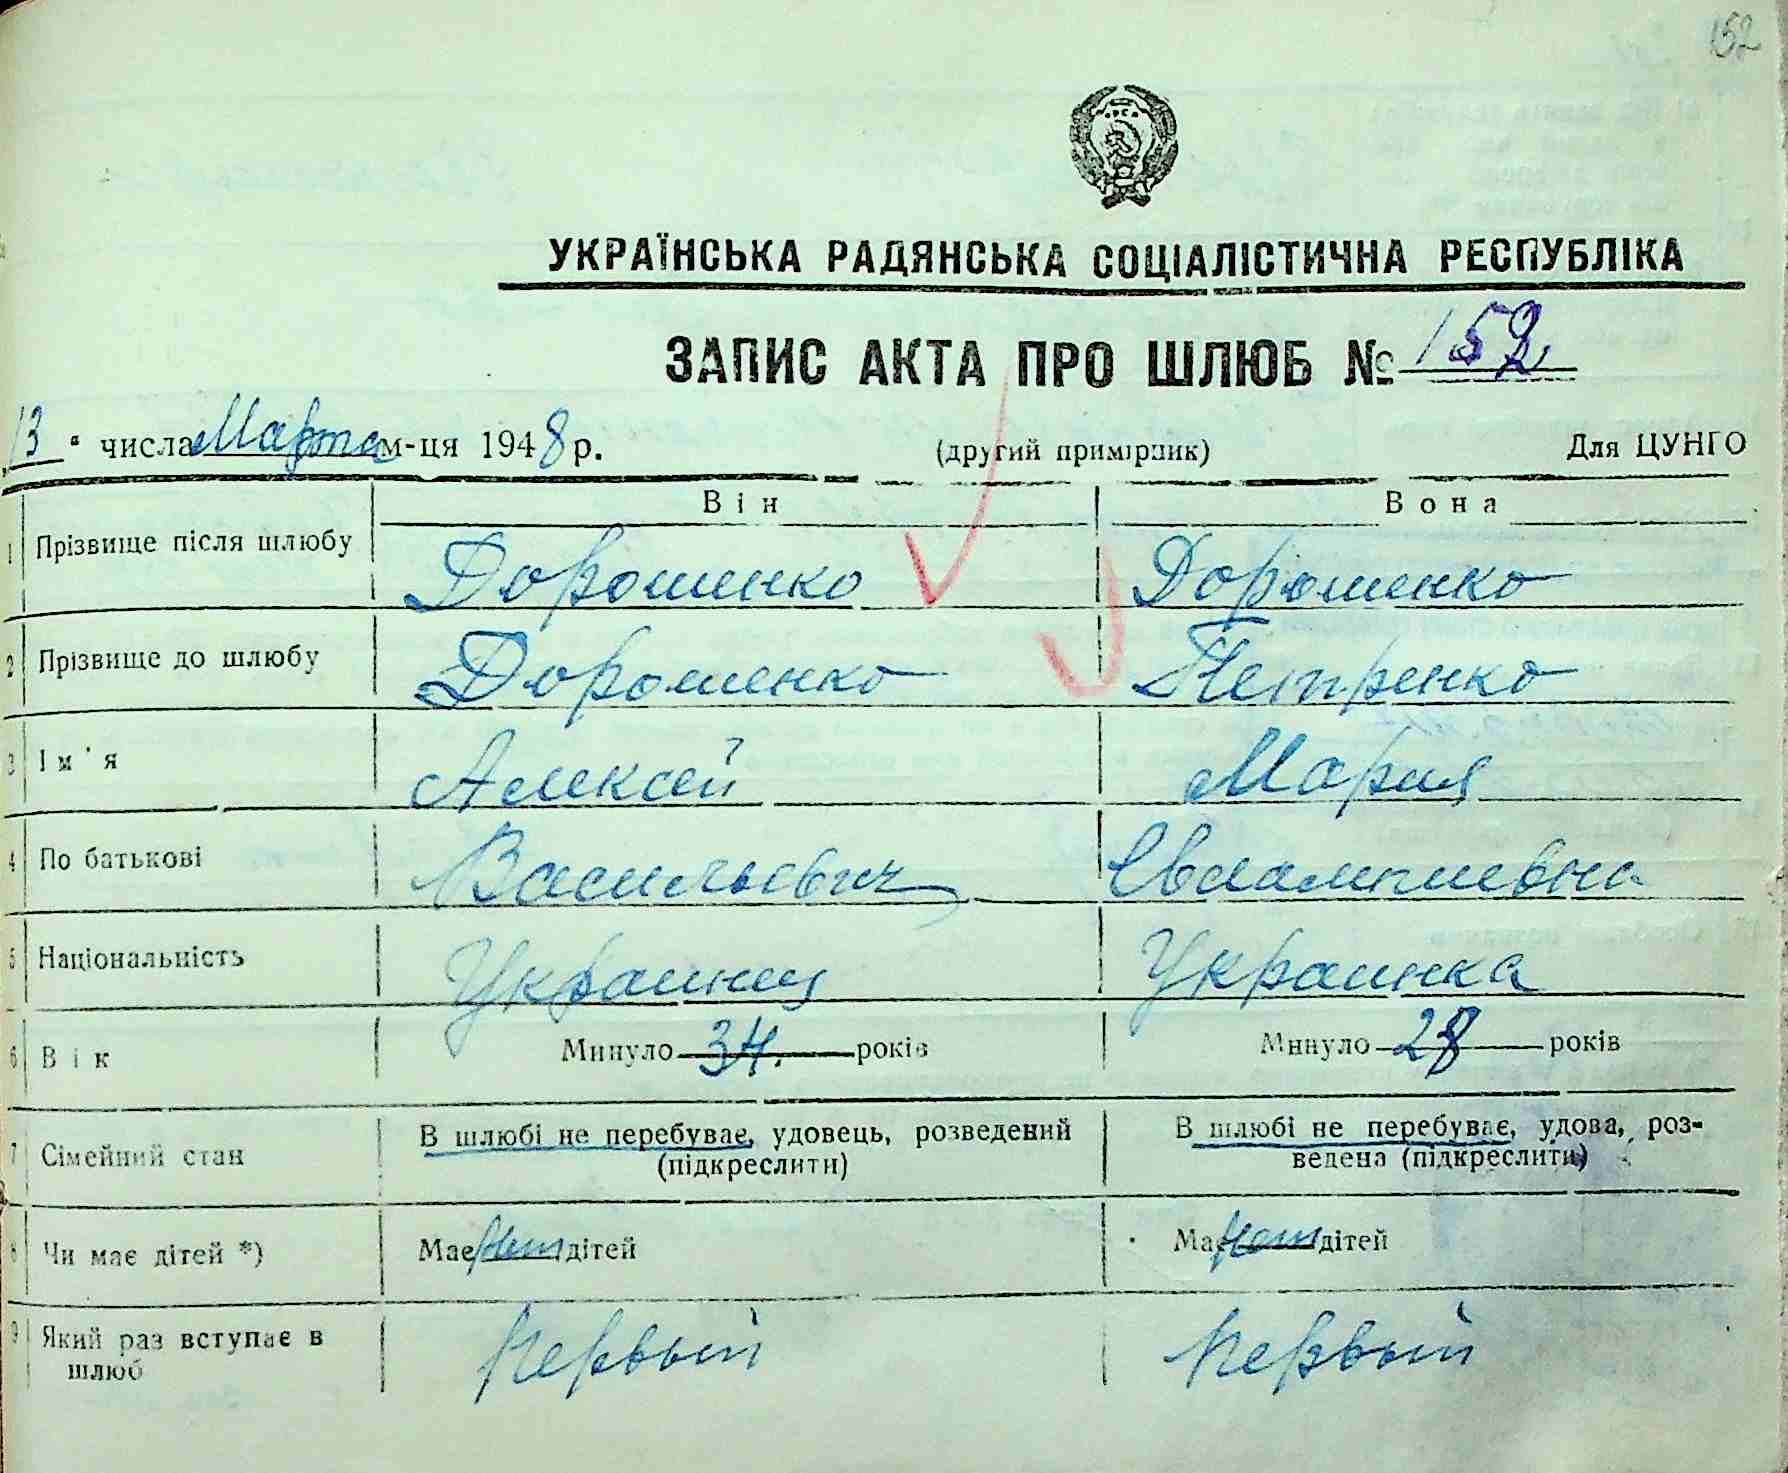 152
УКРАЇНСЬКА РАДЯНСЬКА СОЦІАЛІСТИЧНА РЕСПУБЛІКА
ЗАПИС АКТА ПРО ШЛЮБ № 152
13 " числа Марта м-ця 1948 р. (другий примірник) Для ЦУНГО
Він Вона
1 Прізвище після шлюбу Дорошенко Дорошенко
2 Прізвище до шлюбу Дорошенко Петренко
3 Ім'я Алексей Мария
4 По батькові Васильевич Евлампиевна
5 Національність Украинец Украинка
6 Вік Минуло 34. років Минуло 28 років
7 Сімейний стан В шлюбі не перебуває, удовець, розведений В шлюбі не перебуває, удова, роз-
(підкреслити) ведена (підкреслити)
8 Чи має дітей *) Має нет дітей Має нет дітей
9 Який раз вступає в Первый Первый
шлюб